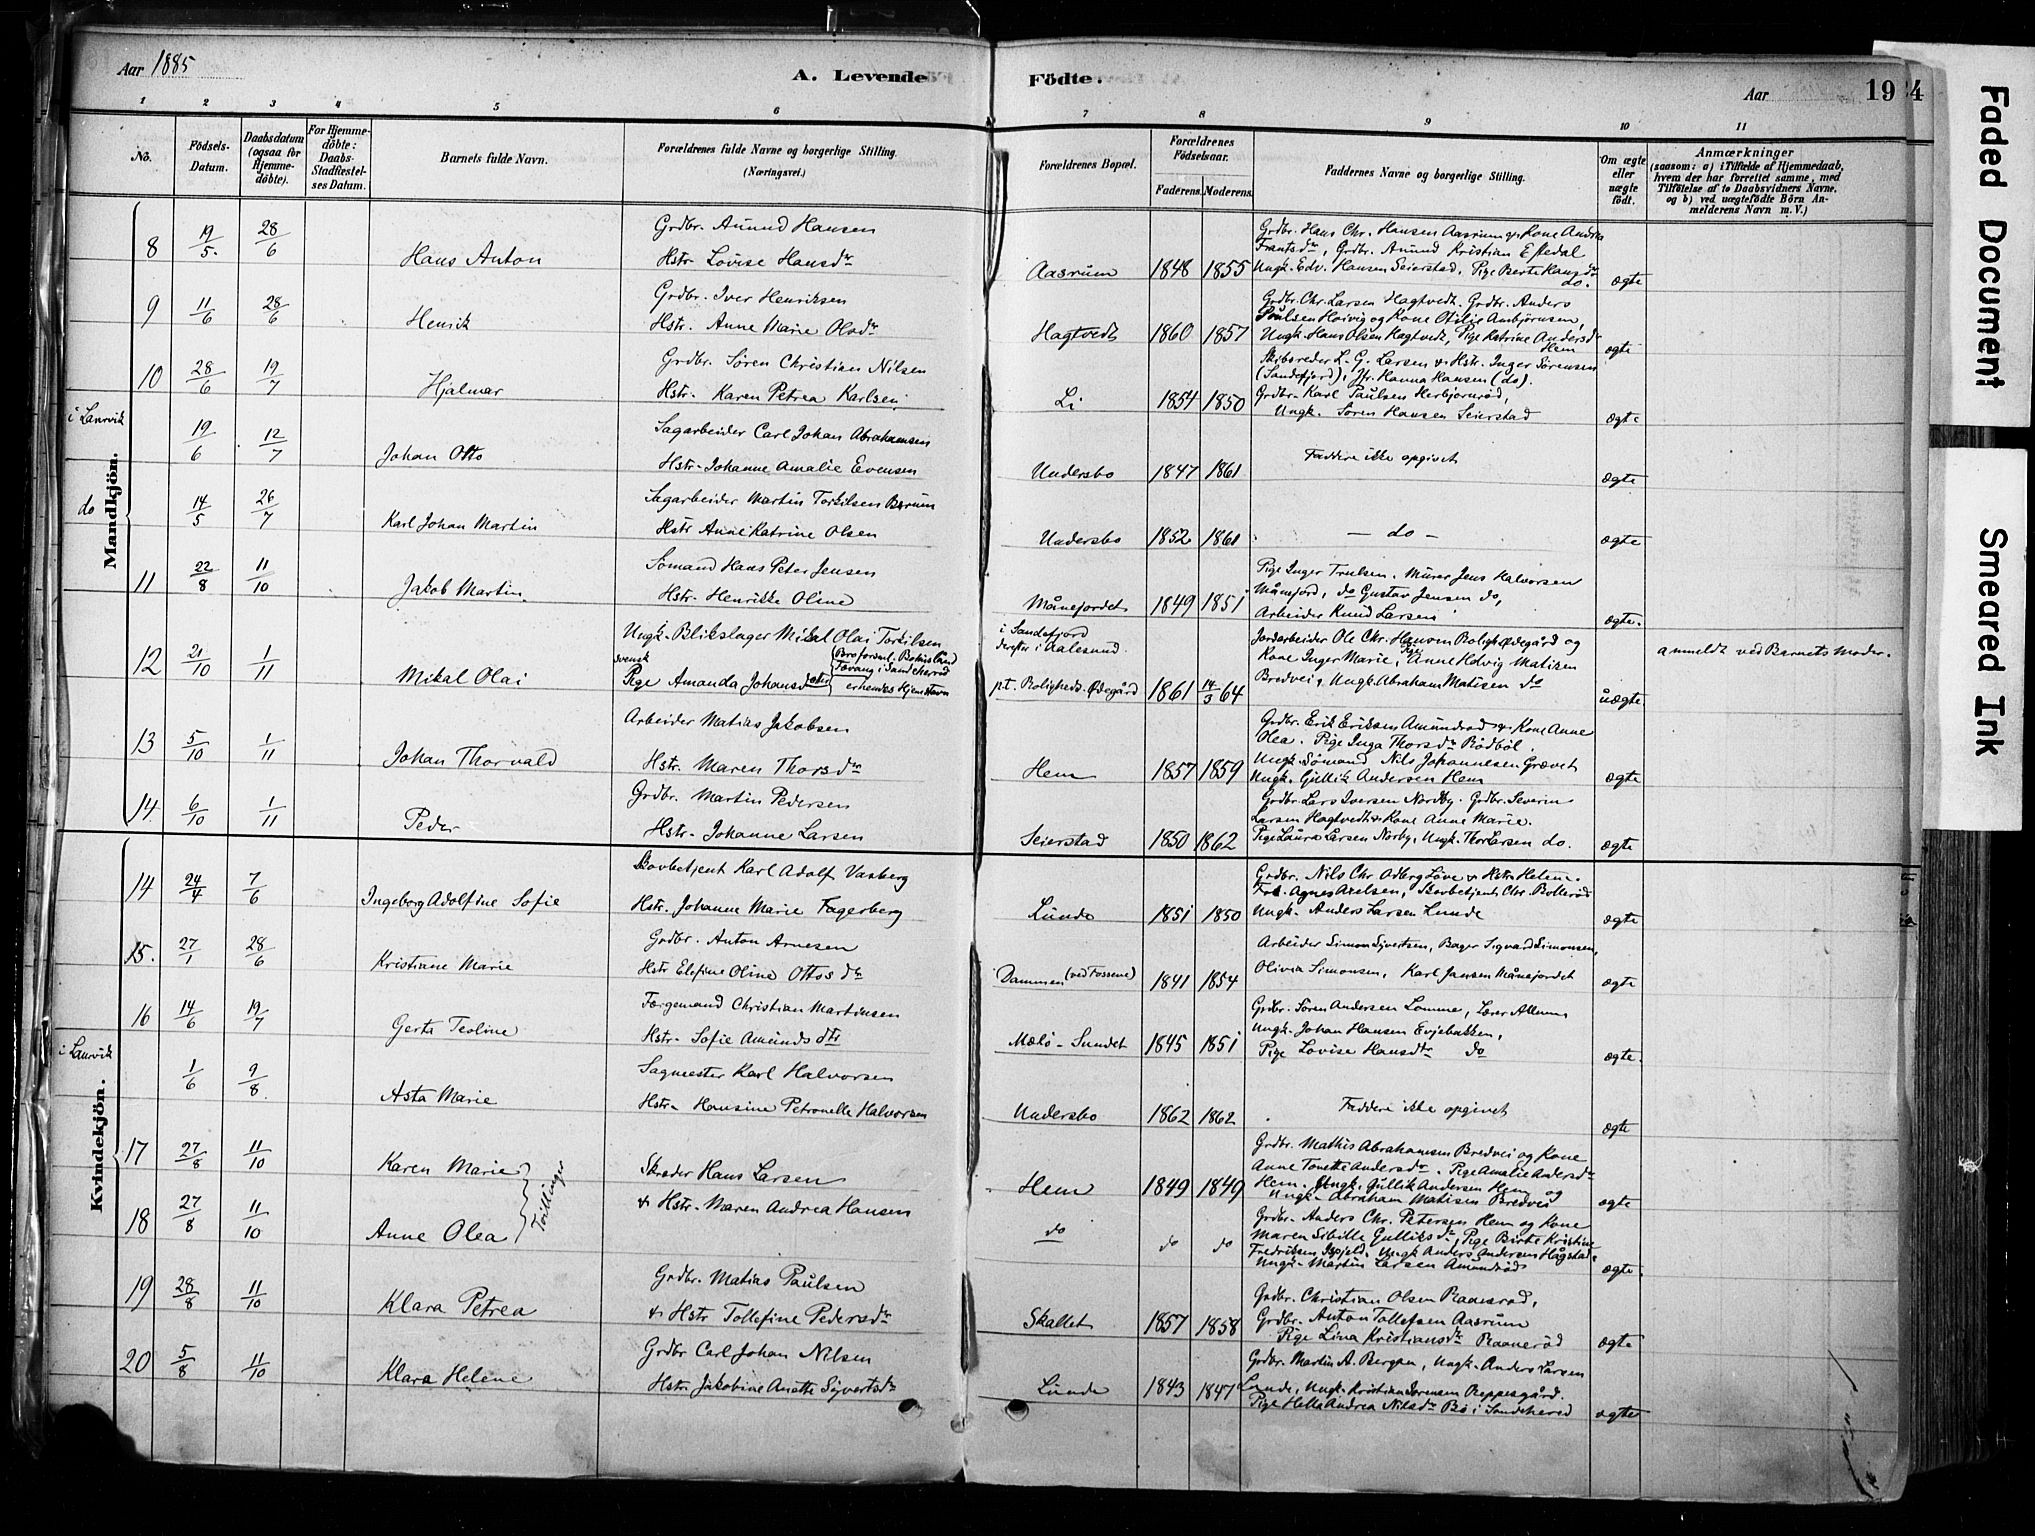 Aar 1885
A. Levende
Födte.
Aar
19
4
1 2 3 4 5 6 7 8 9 10 11
No.
Födsels-Datum.
Daabsdatum (ogsaa for Hjemme-döbte).
For Hjemme-döbte: Daabs-Stadfæstel-ses Datum.
Barnets fulde Navn.
Forældrenes fulde Navne og borgerlige Stilling. (Næringsvei.)
Forældrenes Bopæl.
Forældrenes Födselsaar.
Faderens. Moderens.
Faddernes Navne og borgerlige Stilling.
Om ægte eller uægte födt.
Anmærkninger
(saasom: a) i Tilfælde af Hjemmedaab, hvem der har forrettet samme, med Tilföielse af to Daabsvidners Navne, og b) ved uægtefödte Börn An-melderens Navn m. V.)
Mandkjön.
8 19/5. 28/6 Hans Anton
Grdbr. Amund Hansen
Hstr Lovise Hansdr
Aasrum 1848 1855
Grdbr. Hans Chr. Hansen Aasrum og Kone Andrea
Frantsdr, Grdbr. Amund Kristian Eftedal
Ungk. Edv. Hansen Seierstad, Pige Berte Hansdr
do.
ægte
9 11/6 28/6 Henrik
Grdbr. Iver Henriksen
Hstr. Anne Marie Olsdr
Hagtvedt 1860 1857
Grdbr. Chr. Larsen Hagtvedt. Grdbr. Anders
Poulsen Hoivig og Kone Otilie Ambjörnsen,
Ungk. Hans Olsen Hagtvedt, Pige Katrine Andersdr
Hem
ægte
10 28/6 19/7 Hjalmar
Grdbr. Søren Christian Nilsen
Hstr. Karen Petrea Karlsen
Li 1854 1850
Skibsreder L. G. Larsen & Hstr. Inger Sørensen
(Sandefjord), Jfr. Hanna Hansen (do).
Grdbr. Karl Paulsen Herbjørnrød,
Ungk. Søren Hansen Seierstad
ægte
i Laurvik 19/6 12/7 Johan Otto
Sagarbeider Carl Johan Abrahamsen
Hstr. Johanne Amalie Evensen
Undersbo 1847 1861
Faddere ikke opgivet
ægte
do 14/5 26/7 Karl Johan Martin
Sagarbeider Martin Torkilsen Barum
Hstr Anne Katrine Olsen
Undersbo 1852 1861
— do —
ægte
11 22/8 11/10 Jakob Martin
Sømand Hans Peter Jensen
Hstr. Henrikke Oline
Månejordet 1849 1851
Pige Inger Trulsen. Murer Jens Halvorsen
Månejord, do Gustav Jensen do,
Arbeider Knud Larsen
ægte.
12 21/10 1/11 Mikal Olai
Ungk. Blikslager Mikal Olai Torkilsen
svensk
Pige Amanda Johansdatter
i Sandefjord
derefter i Aalesund.
pt. Roligheds-Ødegård 1861 14/3 64
Jordarbeider Ole Chr. Hansen Roligh.Ødegård og
Kone Inger Marie, Pige Anne Hedvig Matisen
Bredvei, Ungk. Abraham Matisen do
uægte
anmeldt ved Barnets Moder.
13 5/10 1/11 Johan Thorvald
Arbeider Matias Jakobsen
Hstr. Maren Thorsdr
Hem 1857 1859
Grdbr. Erik Eriksen Amundrød & Kone Anne
Olea. Pige Inga Thorsdr Rødbøl.
Ungk. Sømand Nils Johannesen Grævet
Ungk. Gullik Andersen Hem
ægte
14. 6/10 1/11 Peder
Grdbr. Martin Pedersen
Hstr. Johanne Larsen
Seierstad 1850 1862
Grdbr. Lars Iversen Nordby. Grdbr. Severin
Larsen Hagtvedt & Kone Anne Marie.
Pige Laura Larsen Norby, Ungk. Thor Larsen do.
ægte
Kvindekjön.
14 24/4 7/6 Ingeborg Adolfine Sofie
Skovbetjent Karl Adolf Vasberg
Hstr. Johanne Marie Fagerberg
Lunde 1851 1850
Grdbr. Nils Chr. Adberg Løve & Hstr. Helene.
Frk. Agnes Axelsen, Skovbetjent Chr. Bollerød
Ungk. Anders Larsen Lunde
ægte
15. 27/1 28/6 Kristiane Marie
Grdbr. Anton Arnesen
Hstr Elefine Oline Ottosdr
Dammen (ved Fossene) 1841 1854
Arbeider Simon Syvertsen, Bager Sigvard Simonsen,
Olivia Simonsen, Karl Jansen Månejordet
ægte
16 14/6 19/7 Gerta Teoline
Færgemand Christian Martinsen
Hstr. Sofie Amundsdtr
Mælø-Sundet 1845 1851
Grdbr. Søren Andersen Lamme, Lærer Allum
Ungk. Johan Hansen Evjebakken,
Pige Lovise Hansdtr do
ægte.
i Laurvik 1/6 9/8. Asta Marie
Sagmester Karl Halvorsen
Hstr. Hansine Petronelle Halvorsen
Undersbo 1862 1862
Faddere ikke opgivet
ægte
17 27/8 11/10 Karen Marie
Tvillinger
Skræder Hans Larsen
Hem 1849 1849
Grdbr. Mathis Abrahamsen Bredvei og Kone
Anne Tonette Andersdr. Pige Amalie Andersdr
Hem. Ungk. Gullik Andersen Hem og
Ungk. Abraham Matisen Bredvei
ægte
18 27/8 11/10 Anne Olea
& Hstr. Maren Andrea Hansen
do do do
Grdbr. Anders Chr. Petersen Hem og Kone
Maren Sibille Gulliksdr, Pige Birte Kristine
Fredriksen Ispjeld, Ungk Anders Andersen Hågstad,
Ungk. Martin Larsen Amundrød
ægte.
19 28/8 11/10 Klara Petrea
Grdbr. Matias Paulsen
& Hstr Tollefine Pedersdr
Skallet 1857 1858
Grdbr. Christian Olsen Raanerød,
Grdbr. Anton Tollefsen Aasrum
Pige Lina Kristiansdr Raanerød
ægte
20 5/8 11/10 Klara Helene
Grdbr Carl Johan Nilsen
Hstr Jakobine Anette Syvertsdr
Lunde 1843 1847
Grdbr. Martin A. Bergan, Ungk. Anders Larsen
Lunde, Ungk. Kristian Sørensen Reppesgård.
Pige Hella Andrea Nilsdr Bø i Sandeherred
ægte
Faded Document
Smeared Ink